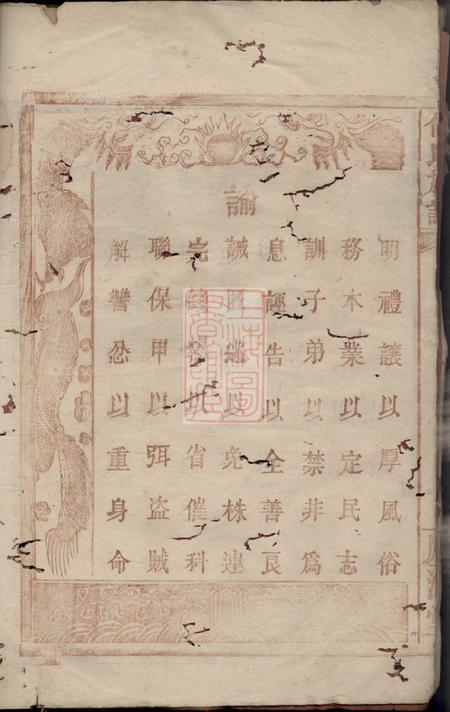 諭
明禮讓以厚風俗
務本業以定民志
訓子弟以禁非爲
息誣告以全善良
誡匿逃以免株連
完錢糧以省催科
聯保甲以弭盜賊
解讐忿以重身命
上海圖書館藏